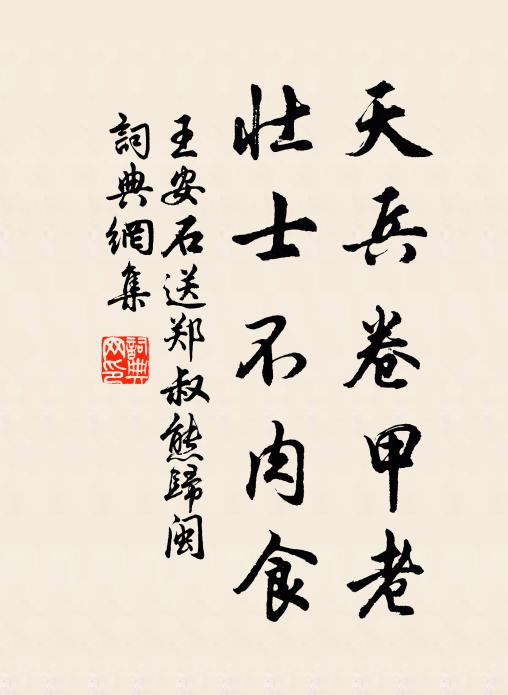 天兵卷甲老
壮士不肉食
王安石送郑叔熊歸闽
詞典網集
詞典網印